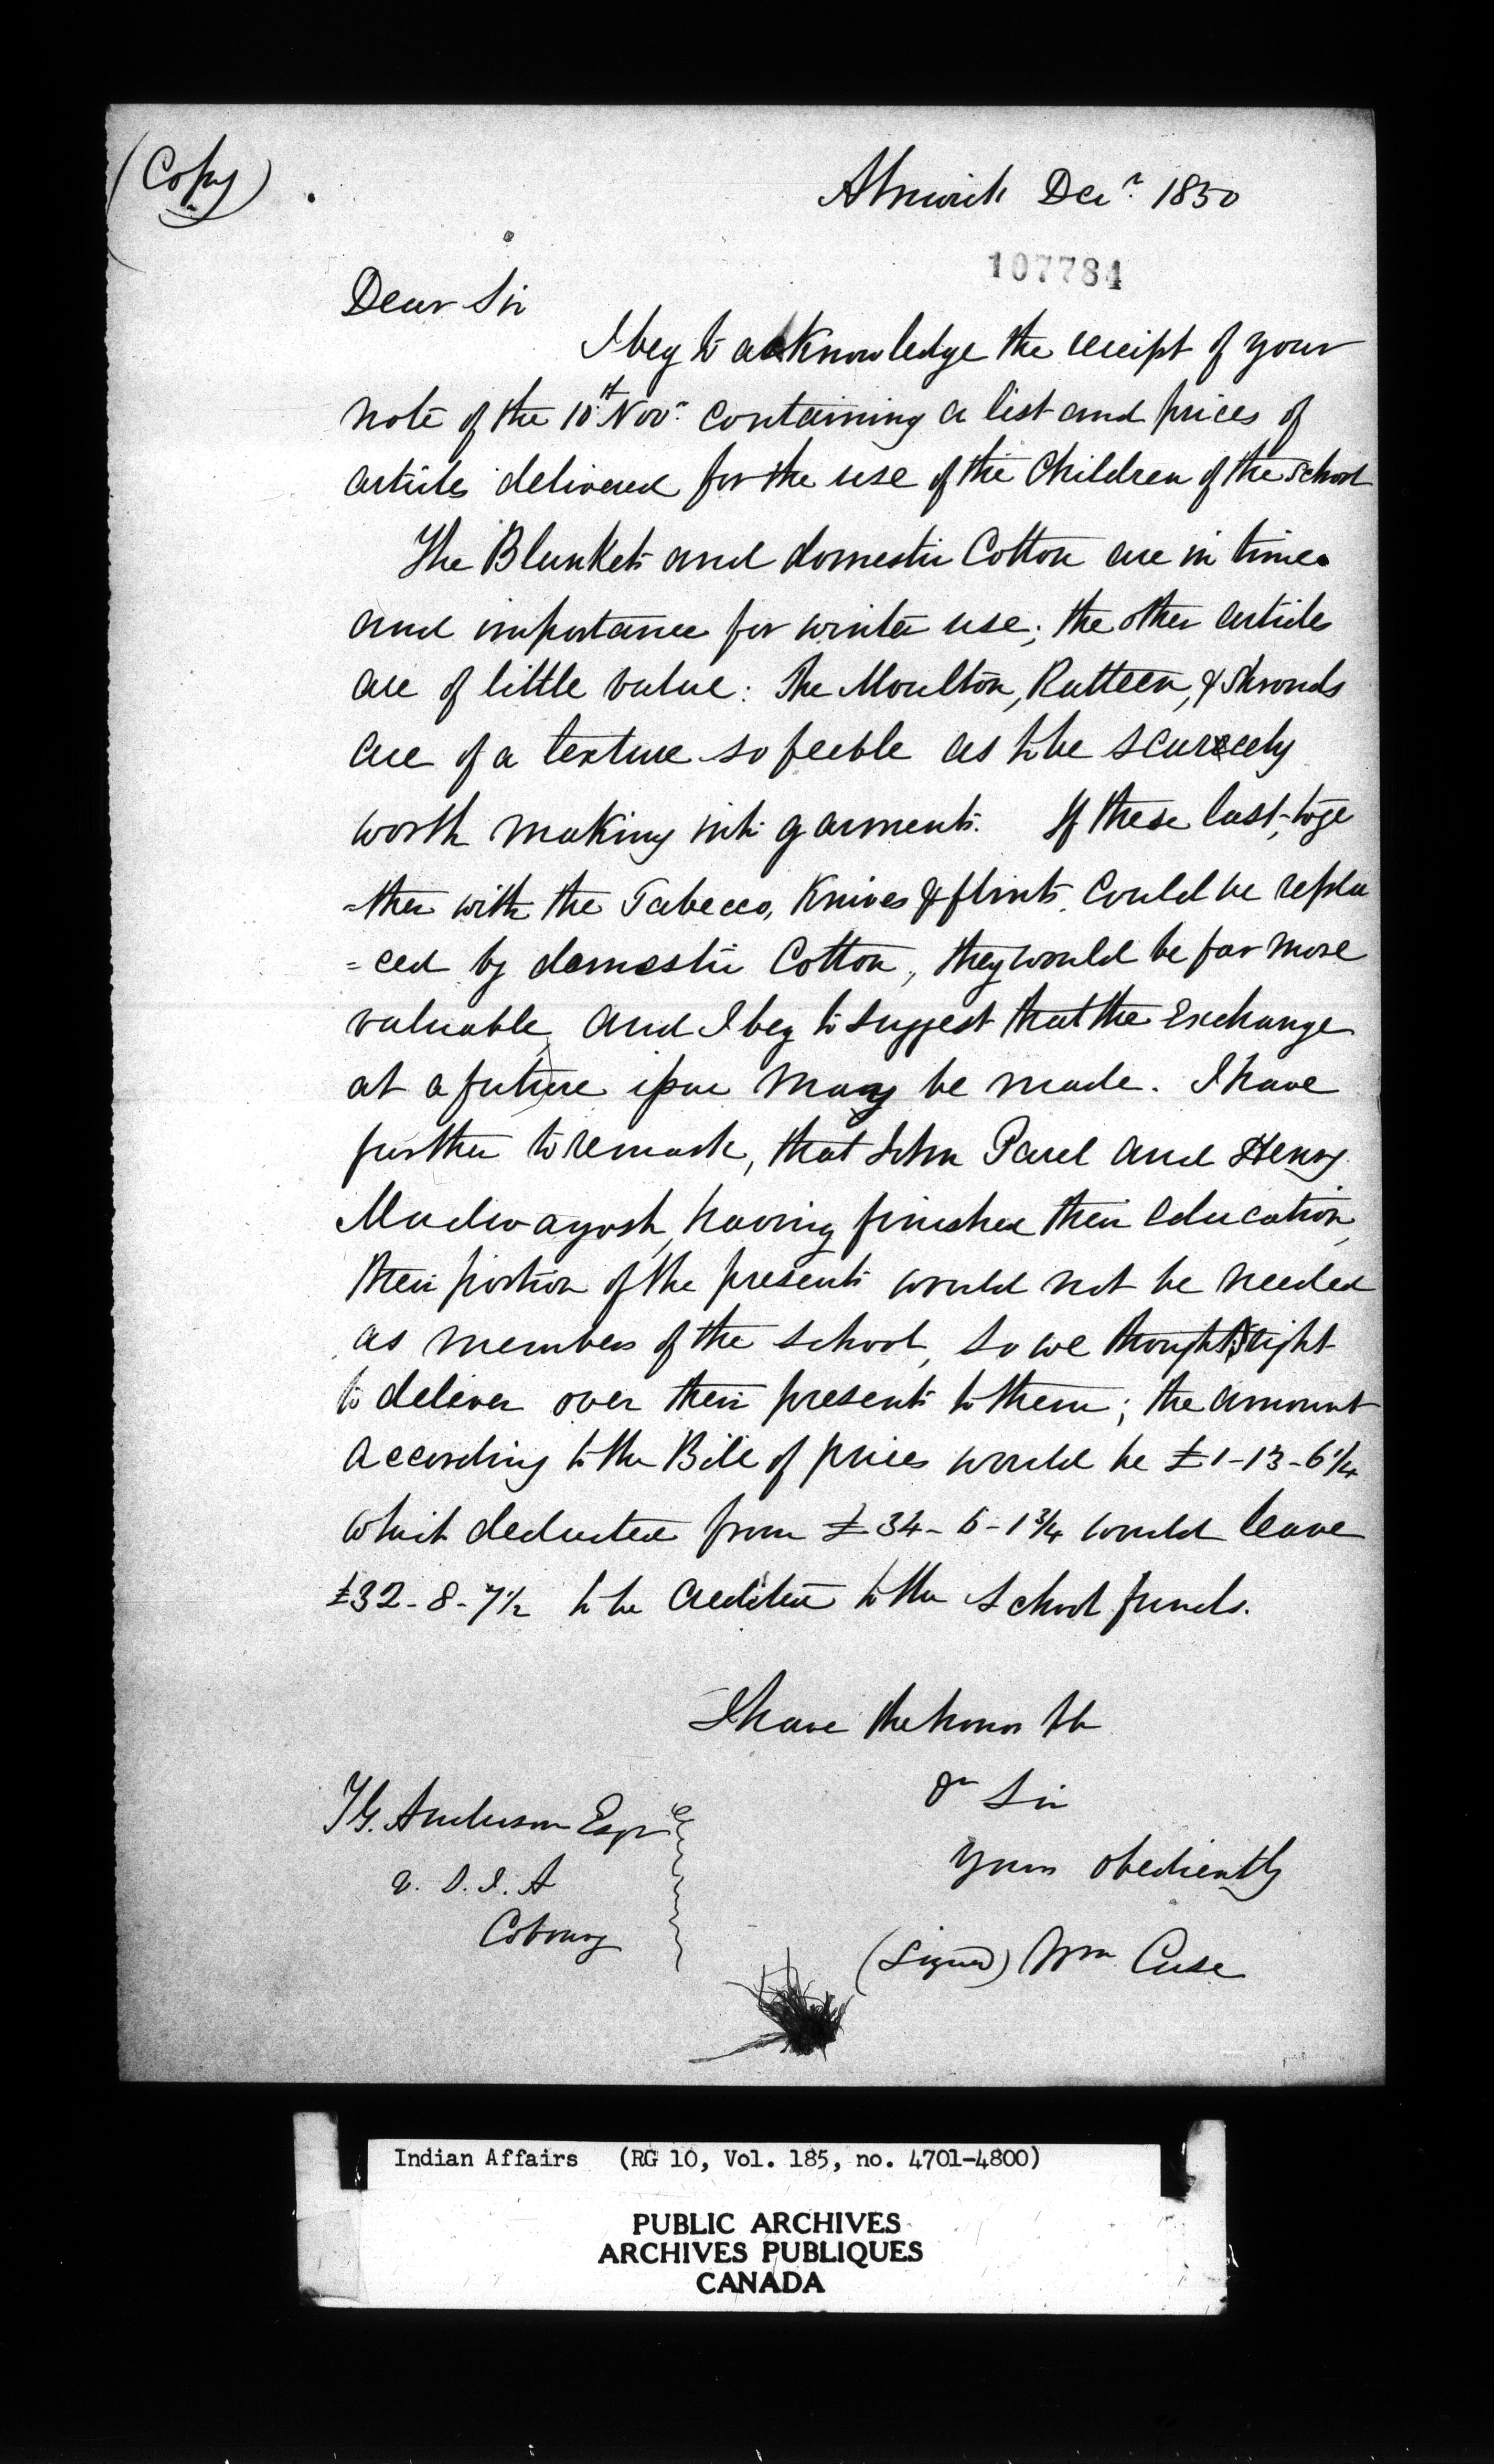 (Copy)
Alnwick Decr. 1850
107784
Dear Sir
I beg to acknowledge the receipt of your
note of the 10th Novr. containing a list and prices of
articles delivered for the use of the Children of the School
The Blankets and domestic Cotton are in time
and importance for winter use; the other articles
are of little value: The Moulton, Ratteen, & Strouds
are of a texture so feeble as to be scarcely
worth making into garments. If these last, toge
=ther with the Tabecco, Knives & flints could be repla
=ced by domestic Cotton, they would be far more
valuable, and I beg to suggest that the Exchange
at a future issue may be made. I have
further to remark, that John Paul and Henry
Madwayosh, having finished their education,
their portion of the presents would not be needed
as members of the school, so we thought right
to deliver over their presents to them; the amount
according to the Bill of prices would be £1-13-6¼
which deducted from £34-  -1¾ would leave
£32-8-7½ to be credited to the School funds.
I have the honor to be
Dr Sir
Yours obediently
(Signed) Wm Case
T.G. Anderson Esqre
V. S. I. A
Cobourg
Indian Affairs (RG 10, Vol. 185, no. 4701-4800)
PUBLIC ARCHIVES
ARCHIVES PUBLIQUES
CANADA